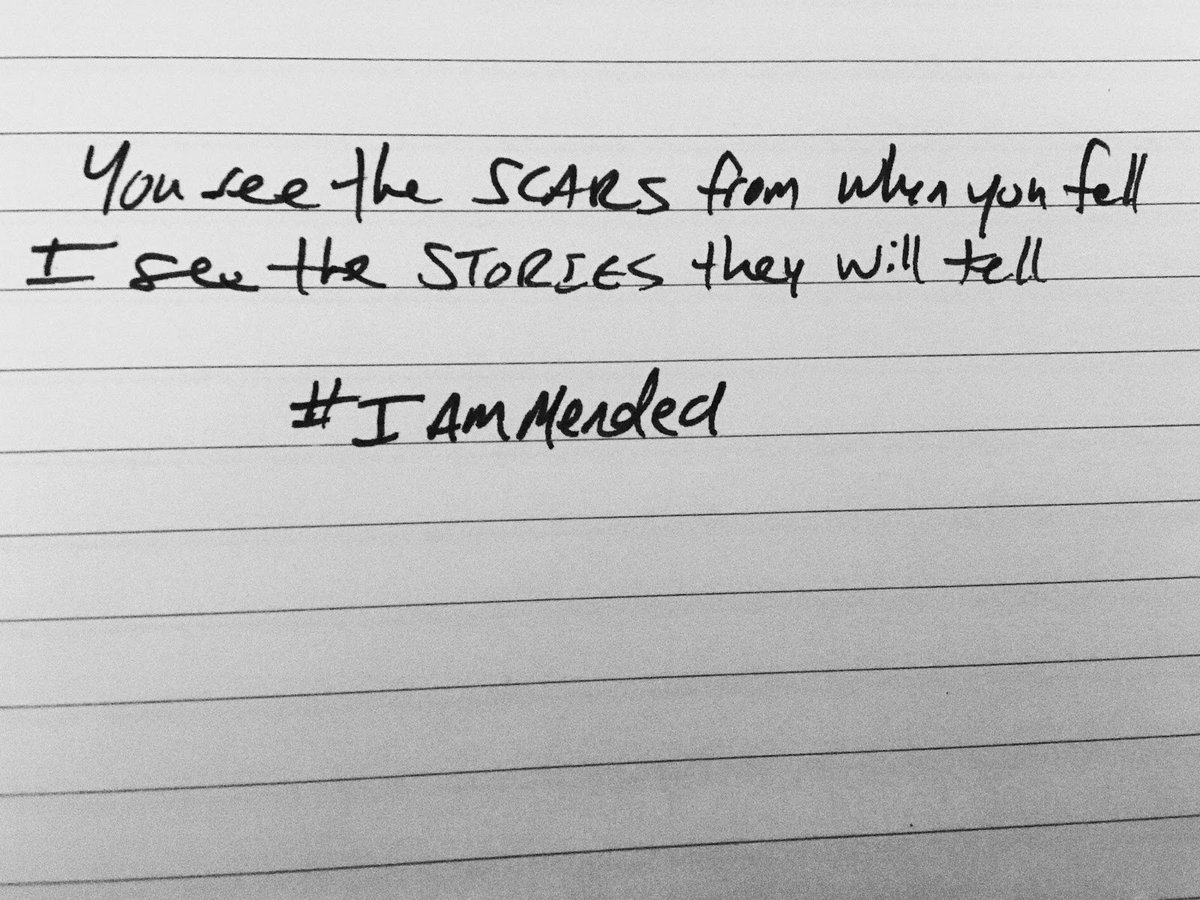 You see the SCARS from when you fell
I see the STORIES they will tell
#IAmMended